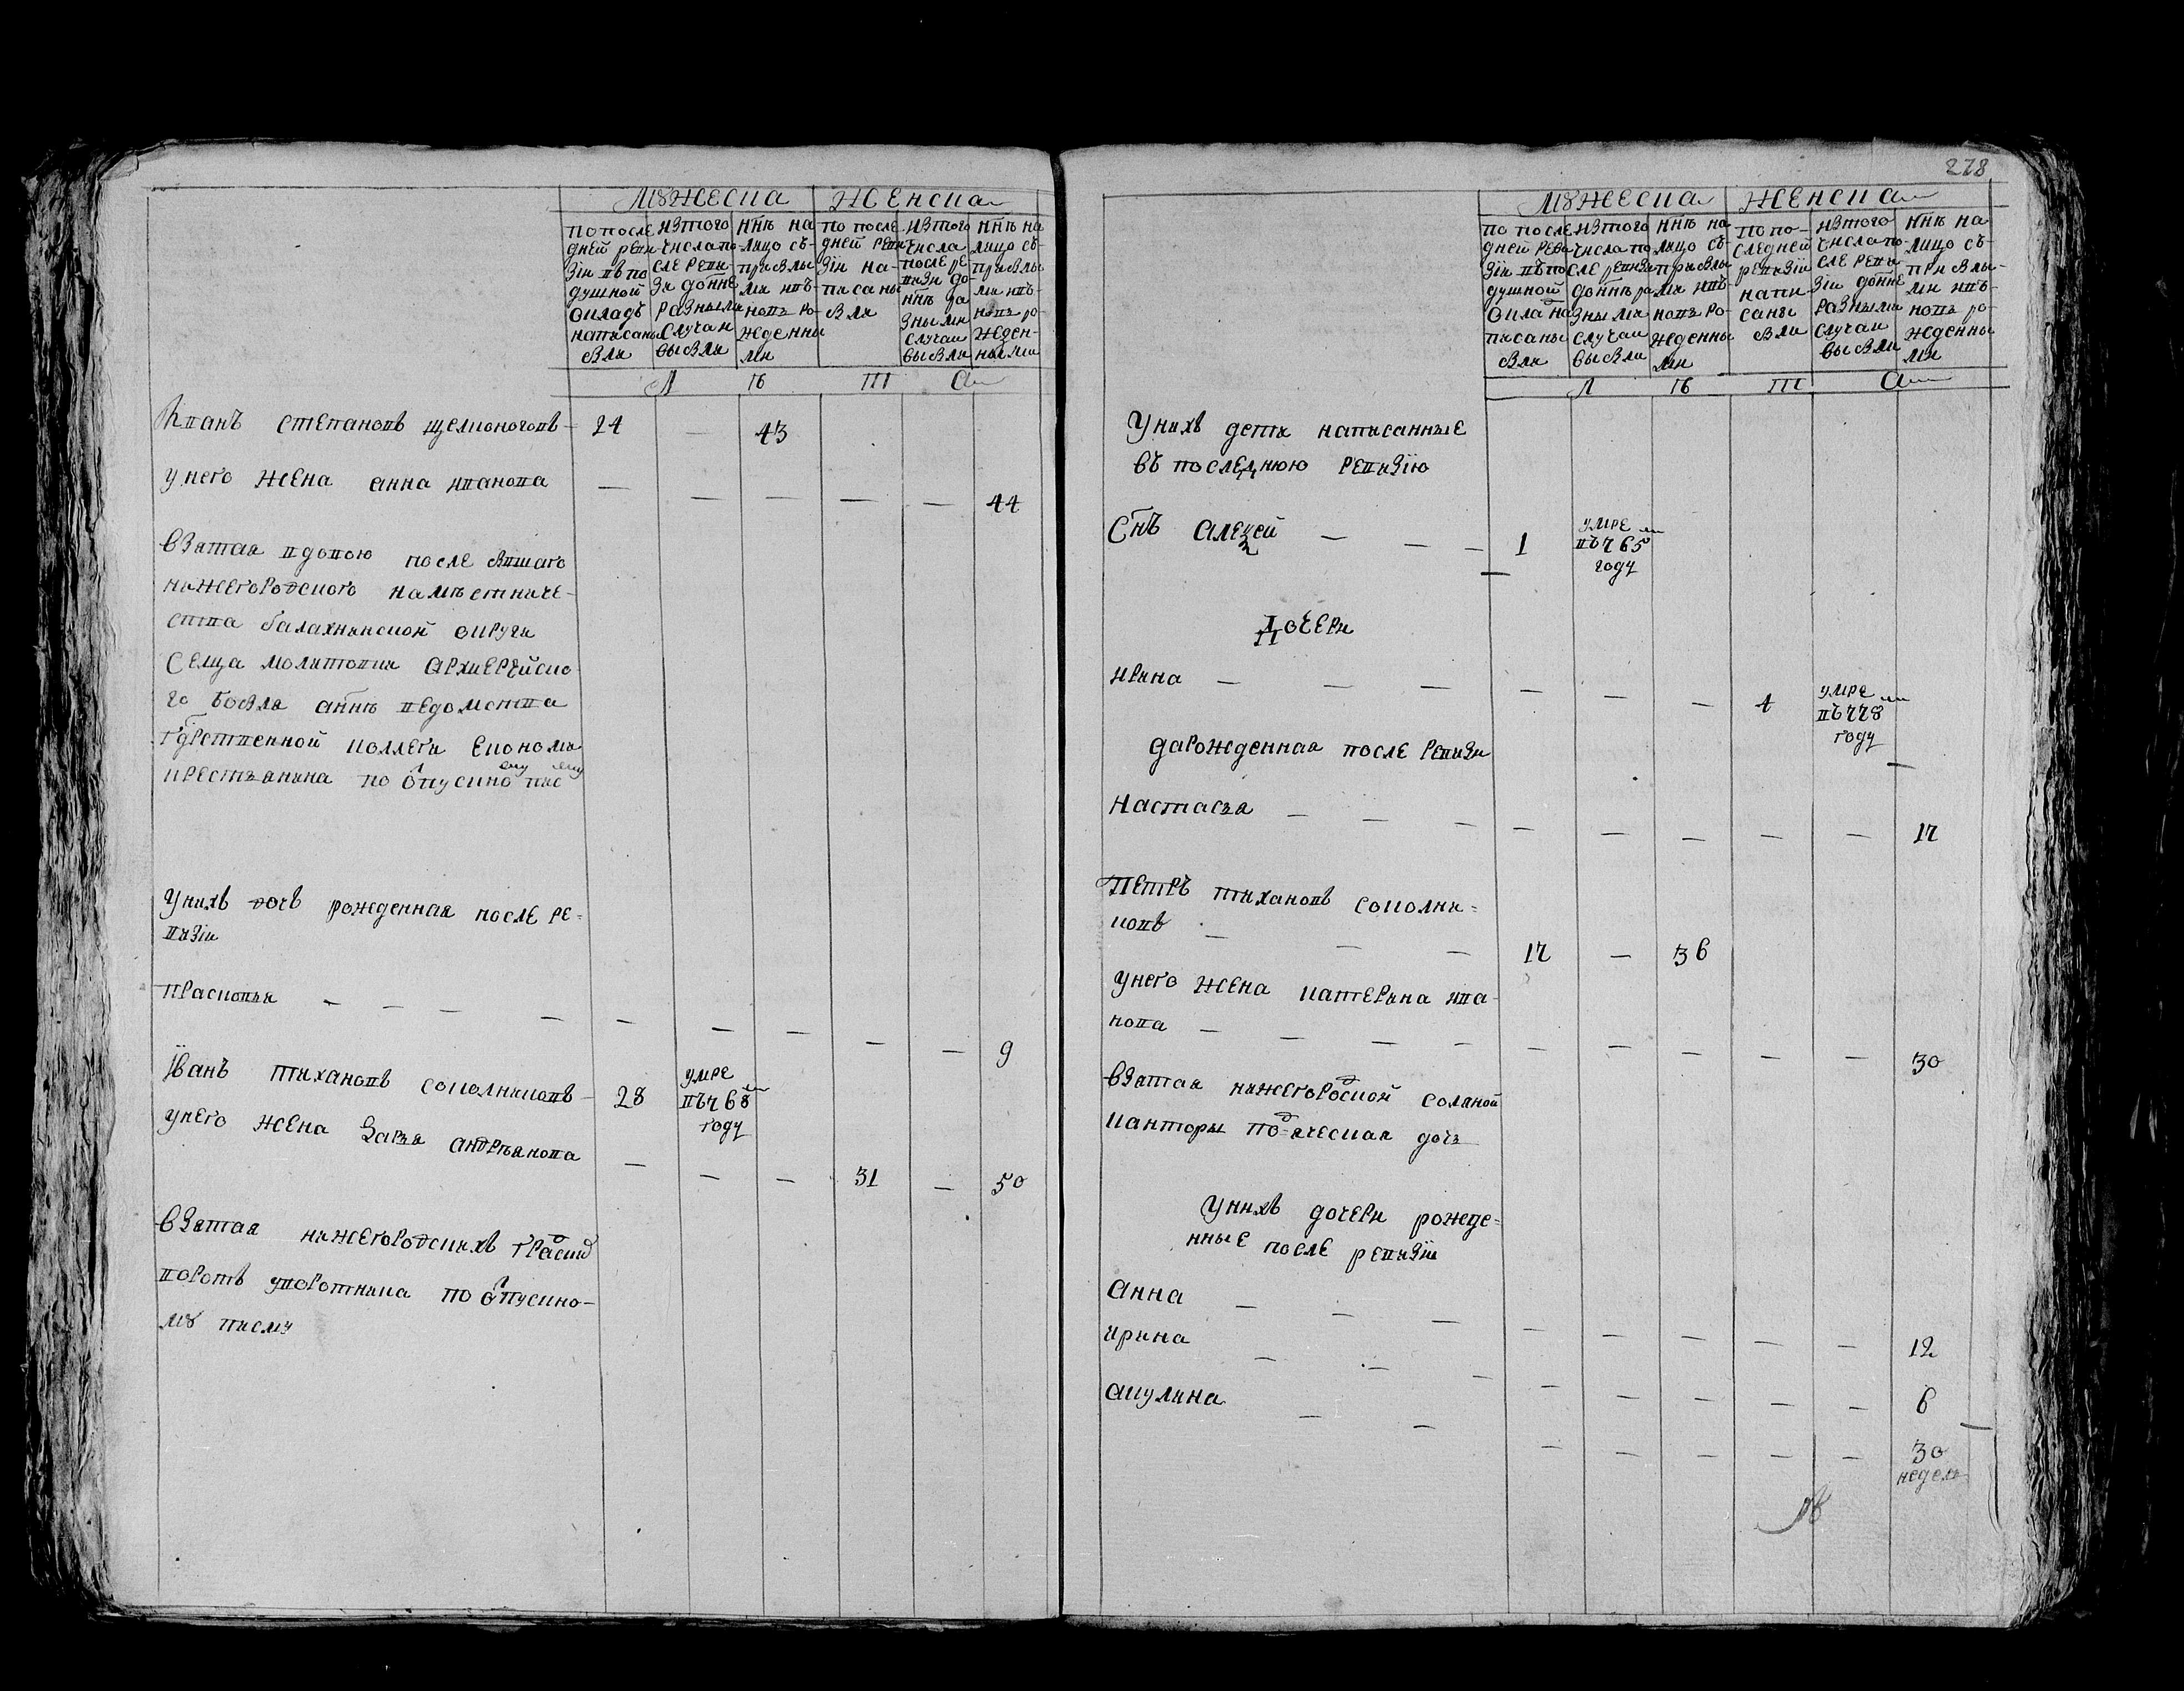 Мужеска Женска
по последней ревизіи въ подушной окладъ написаны были
из того числа после ревизи до ннѣ разными случаи выбыли
ннѣ на лицо съ прибылыми и вновь рожденными
по последней ревизіи написаны были
из того числа после ревизи до ннѣ разными случаи выбыли
ннѣ на лицо съ прибылыми и вновь рожденными
Л Ѣ Т А
Иванъ степановъ щелконоговъ 24 — 43
у него жена анна иванова — — — — — 44
взятая вдовою после бывшаго
нижегородского намѣстниче-
ства балахнинской округи
селца
молитовки архиерейско-
го
ннѣ ведомства
гдрственной коллеги економи
крестьянина по отпускному писму
У них дочь рожденная после ре-
визіи
Прасковья — — — — — — — — — 9
Иванъ тихановъ соколниковъ 28 умре въ 768м году
у него жена дарья андрѣянова — — — 31 — 50
взятая нижегородских градских
ворот уворотника по отпускно-
му писму
278
Мужеска Женска
по последней ревизіи въ подушной оклад написаны были
из того числа после ревизи до ннѣ разными случаи выбыли
ннѣ на лицо съ прибылыми и вновь рожденными
по последней ревизіи написаны были
из того числа после ревизіи до ннѣ разными случаи выбыли
ннѣ на лицо съ прибылыми и вновь рожденными
Л Ѣ Т А
У них дети написанные
въ последнюю ревизію
Снъ Алезей — — — 1 умре въ 765м году
Дочери
Ирина — — — — — — 4 умре въ 778м году
да рожденная после ревизи
Настасья — — — — — — — — 17
Петръ тихановъ соколни-
ковъ — — — 17 — 36
У него жена катерина ива-
нова — — — — — — — — — 30
взятая нижегородской соляной
канторы подьяческая дочь
У них дочери рожде-
нные после ревизіи
Анна — — — — — — — — 12
Ирина — — — — — — — — 6
Акулина — — — — — — — 30
недель